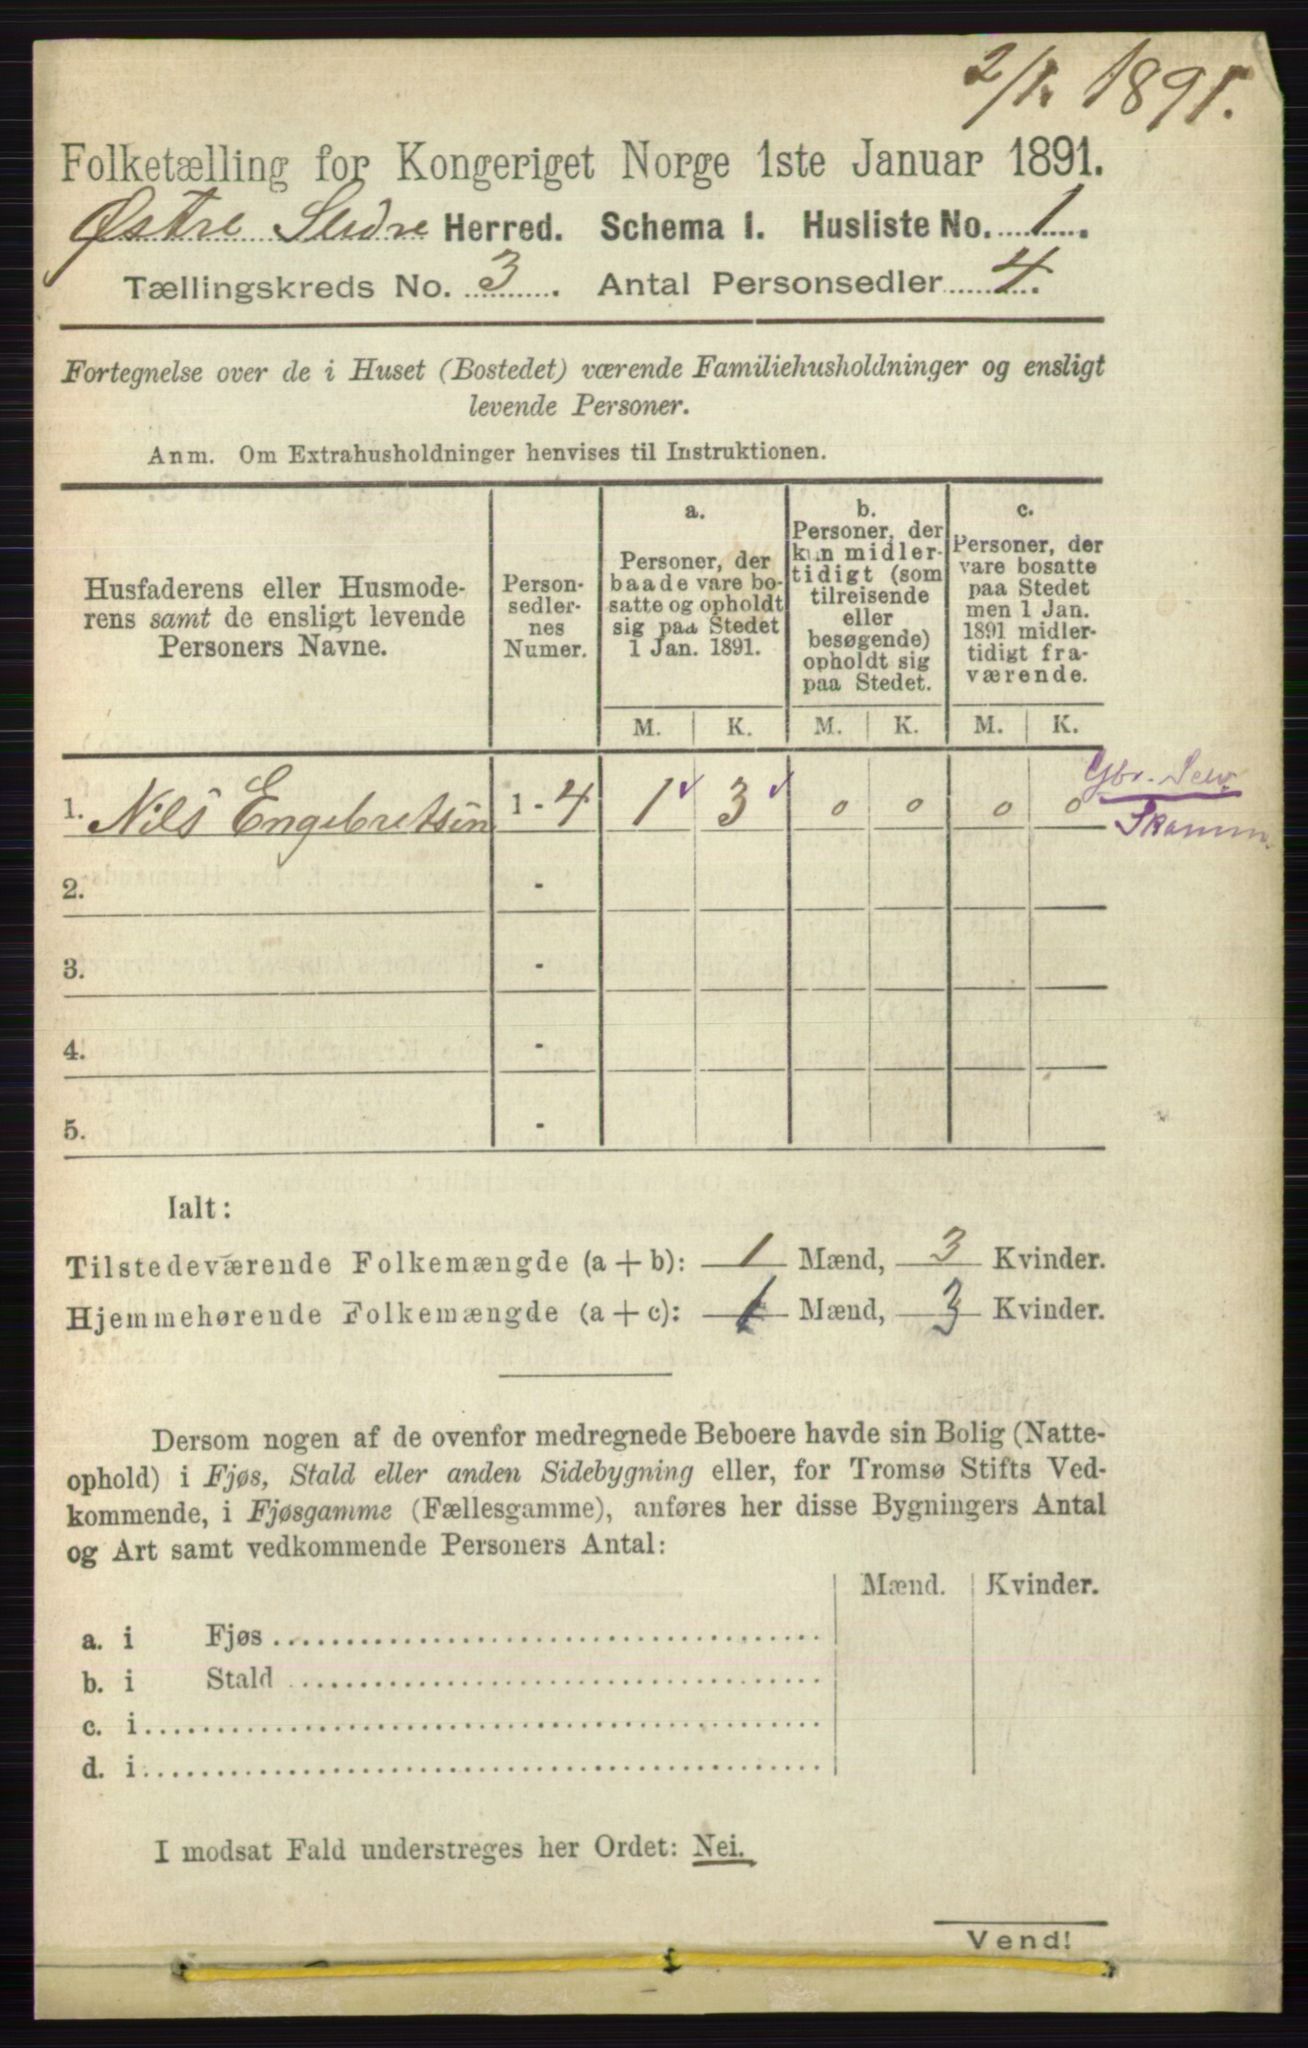 2/1. 1891.
Folketælling for Kongeriget Norge 1ste Januar 1891.
Østre Slidre Herred. Schema 1. Husliste No. 1.
Tællingskreds No. 3. Antal Personsedler 4.
Fortegnelse over de i Huset (Bostedet) værende Familiehusholdninger og ensligt
levende Personer.
Anm. Om Extrahusholdninger henvises til Instruktionen.
Husfaderens eller Husmode-
rens samt de ensligt levende
Personers Navne.
Person-
sedler-
nes
Numer.
a.
Personer, der
baade vare bo-
satte og opholdt
sig paa Stedet
1 Jan. 1891.
b.
Personer, der
kun midler-
tidigt (som
tilreisende
eller
besøgende)
opholdt sig
paa Stedet.
c.
Personer, der
vare bosatte
paa Stedet
men 1 Jan.
1891 midler-
tidigt fra-
værende.
M. K. M. K. M. K.
1. Nils Engebretsen 1 - 4 1 3 0 0 0 0
2. -
3. -
4. -
5. -
Ialt:
Tilstedeværende Folkemængde (a + b): 1 Mænd, 3 Kvinder.
Hjemmehørende Folkemængde (a + c): 1 Mænd, 3 Kvinder.
Dersom nogen af de ovenfor medregnede Beboere havde sin Bolig (Natte-
ophold) i Fjøs, Stald eller anden Sidebygning eller, for Tromsø Stifts Ved-
kommende, i Fjøsgamme (Fællesgamme), anføres her disse Bygningers Antal
og Art samt vedkommende Personers Antal:
Mænd. Kvinder.
a. i Fjøs
b. i Stald
c. i
d. i
I modsat Fald understreges her Ordet: Nei.
Vend!